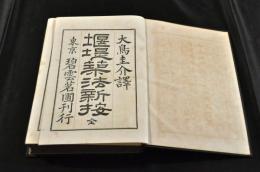 大鳥圭介譯
堰堤築法新按 全
東京 碧雲茗圃刊行